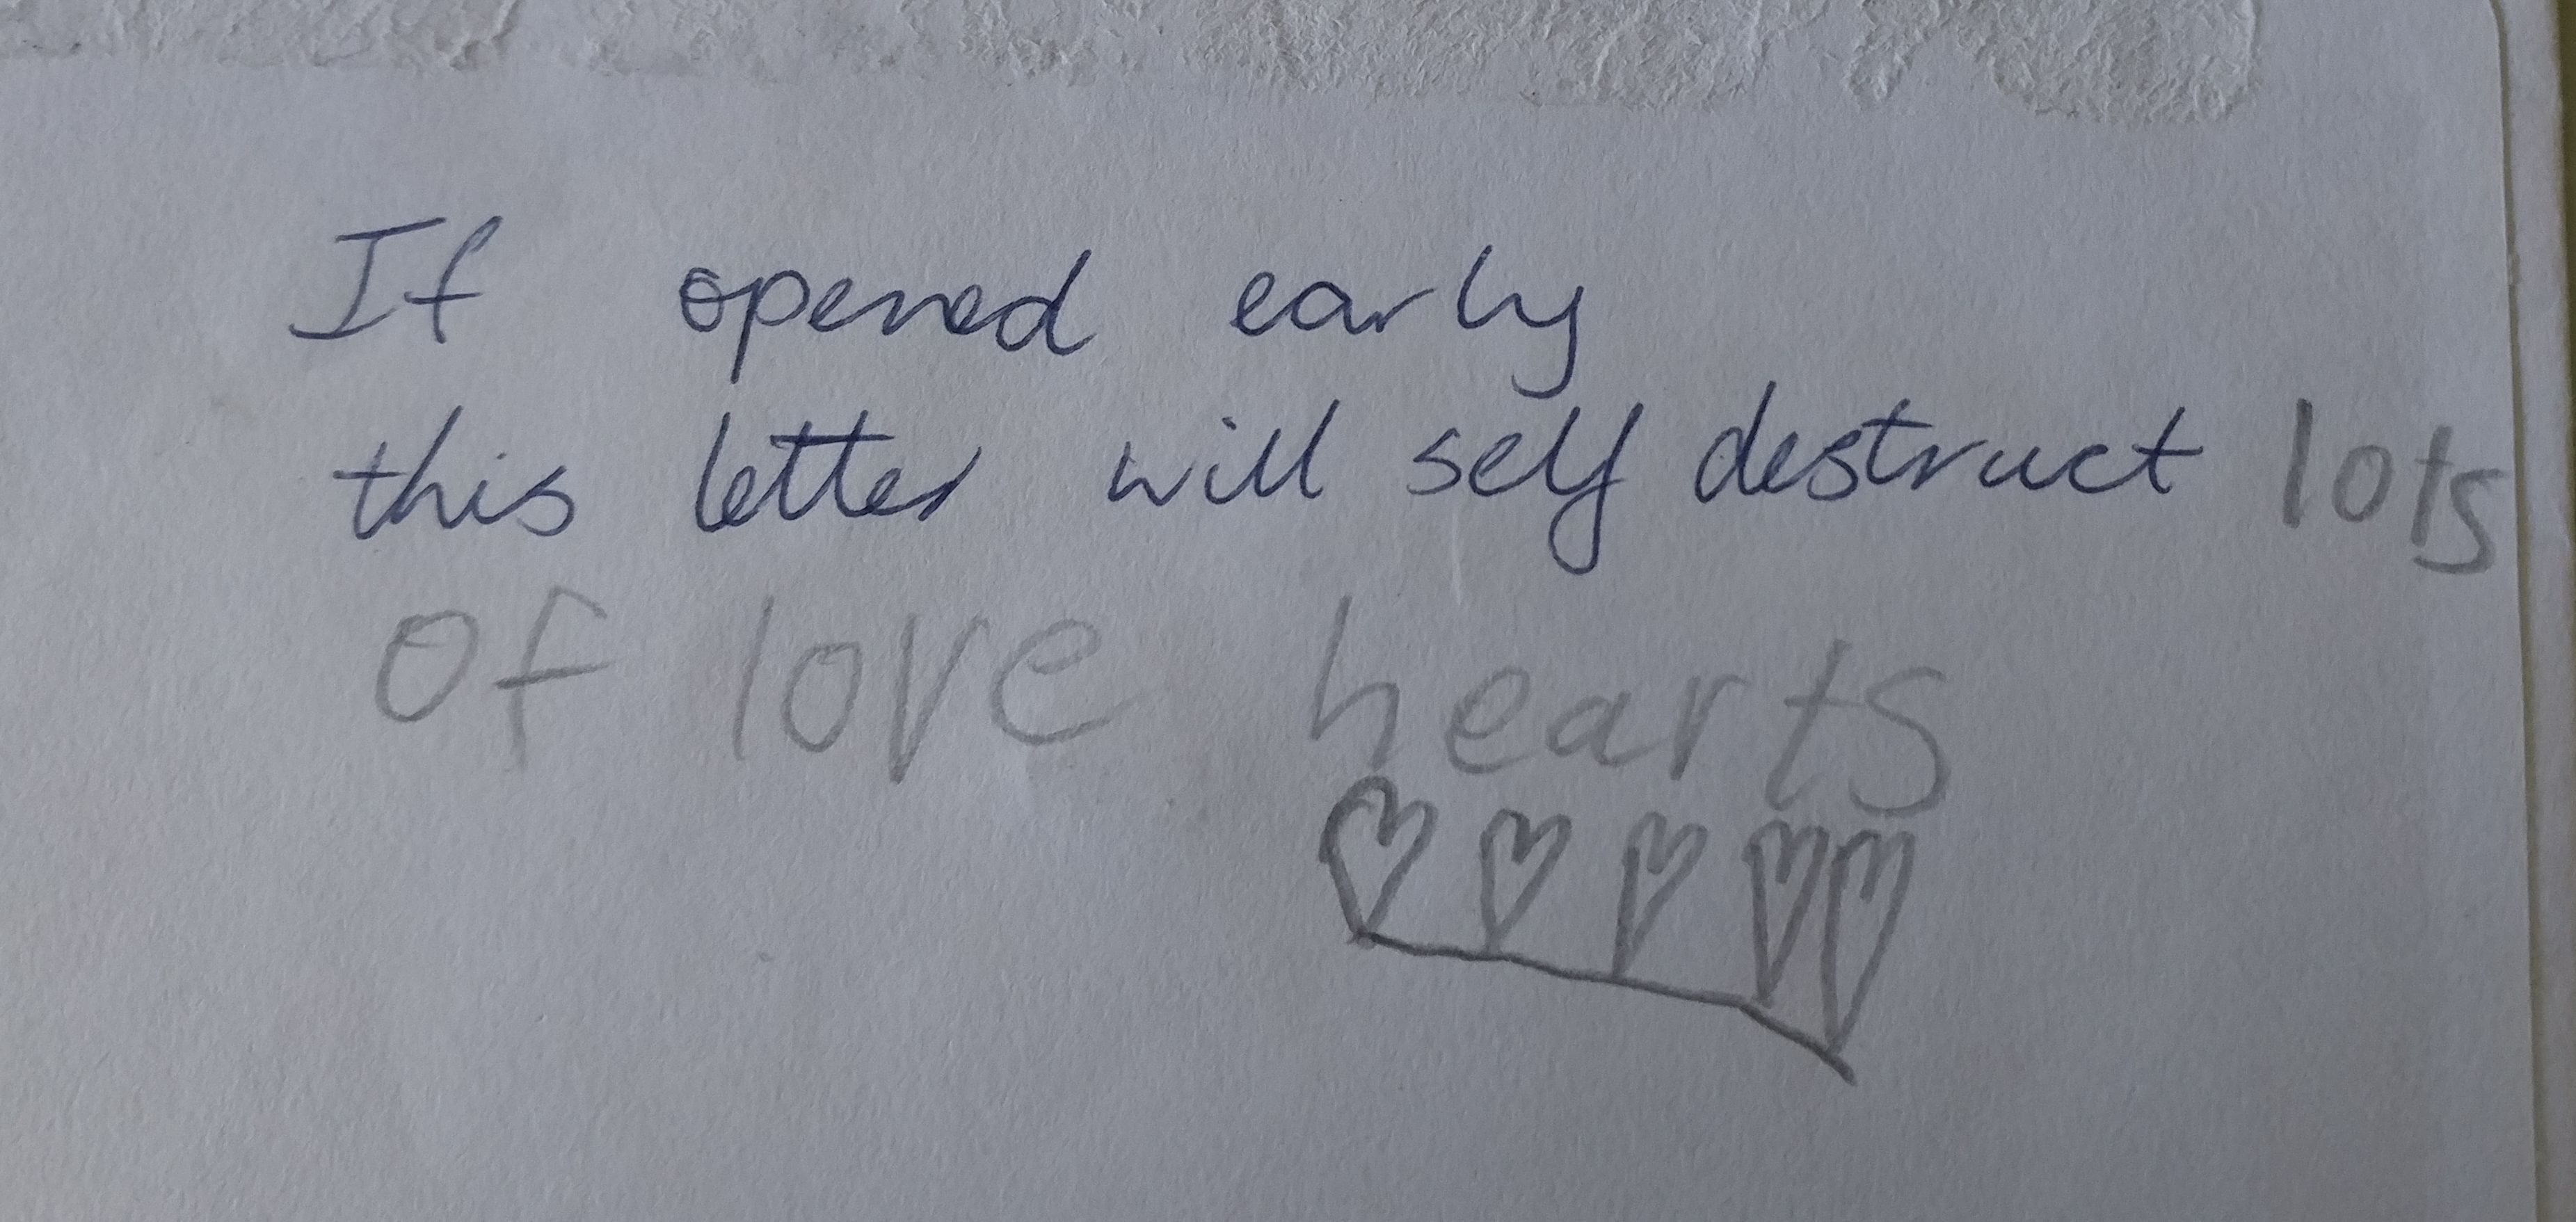 If opened early
this letter will self destruct lots
of love hearts